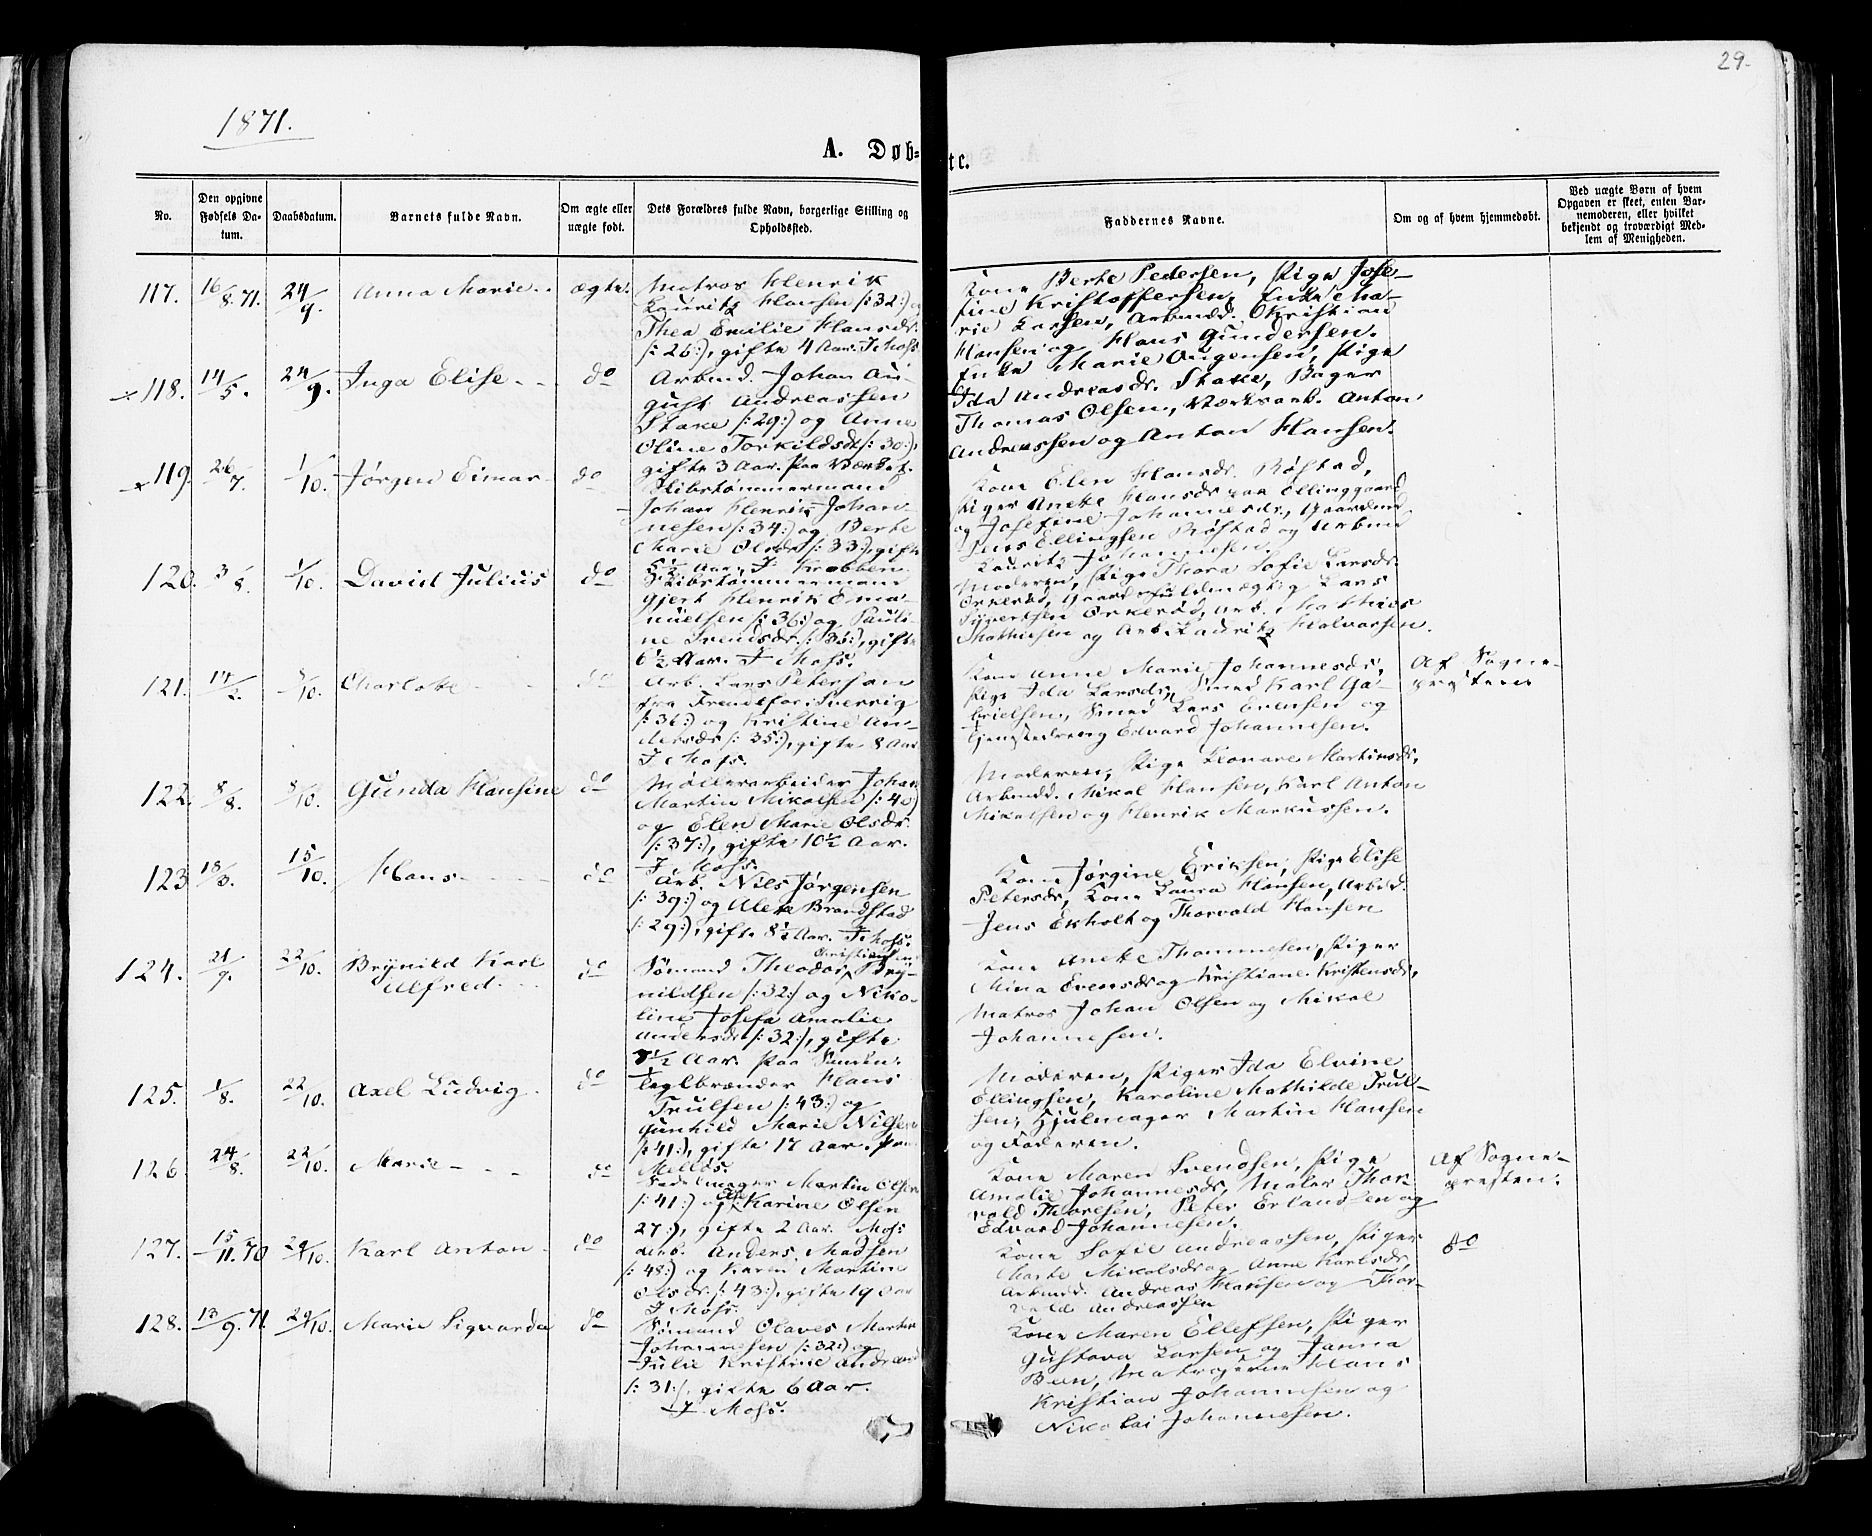 29.
1871.
A. Døb-
te.
No.
Den opgivne Fødsels Da-tum.
Daabsdatum.
Barnets fulde Navn.
Om ægte eller uægte født.
Dets Forældres fulde Navn, borgerlige Stilling og Opholdssted.
Faddernes Navne.
Om og af hvem hjemmedøbt.
Ved uægte Børn af hvem Opgaven er skeet, enten Bar-nemoderen, eller hvilket bekjendt og troværdigt Med-lem af Menigheden.
117. 16/8.71. 24/9. Anna Marie ægte.
Matros Henrik
Lauritz Hansen /:32:) og
Thea Emilie Hansdr.
/:26:), gifte 4 Aar. I Moss
Kone Berte Pedersen, Pige Jose-
fine Kristoffersen, Enke Ma-
rie Larsen, Arbmdd. Christian
Hansen og Hans Gundersen.
118. 14/5. 24/9. Inga Elise do
Arbmd. Johan Au-
gust Andreassen
Stake /:29:) og Anne
Oline Torkildsdr /:30:),
gifte 3 Aar. Paa Værket.
Enke Marie Augensen, Pige
Ida Andreasdr. Stake, Bager
Thomas Olsen, Værksarb. Anton
Andreassen og Anton Hansen.
119. 26/7. 1/10. Jørgen Eimar do
Skibstømmermand
Johan Henrik Johan-
nesen /:34:) og Berte
Marie Olsdr /:33:), gifte
5 1/2 Aar. I Krabben
Kone Elen Hansdr. Røstad,
Piger Anette Hansdr paa Ellinggaard
og Josefine Johannesdr, Gaardmd
Jens Ellingsen Røstad og Arbmd
Lauritz Johannesen.
120. 3/8. 1/10. David Julius do
Skibstømmermand
Gjert Henrik Ema-
nuelsen /:36:) og Pauli-
ne Svendsdr. /:36:), gifte
6 1/2 Aar. I Moss.
Moderen, Pige Thora Sofie Larsdr.
Orkerød, Gaardsfuldmægtig Lars
Syvertsen Orkerød, Arb. Mathias
Mathisen og Arb. Lauritz Halvorsen.
121. 14/2. 8/10. Charlotte do
Arb. Lars Peterson
fra i Sverrig
/:36:) og Kristine An-
dersdr /:35:), gifte 8 Aar
I Moss.
Kone Anne Marie Johannesdr,
Pige Ida Larsdr, Smed Karl Ga-
brielsen, Smed Lars Evensen og
Tjenestedreng Edvard Johannesen.
Af Sogne-
presten
122. 8/8. 8/10. Gunda Hansine do
Møllerarbeider Johan
Martin Mikalsen /:40:)
og Elen Marie Olsdr.
/:37:), gifte 10 1/2 Aar.
I Moss.
Moderen, Pige Leonare Martinsdr,
Arbmdd. Mikal Hansen, Karl Anton
Mikalsen og Henrik Markussen.
123 18/3. 15/10. Hans do
Arb. Nils Jørgensen
/:39:) og Alete Brandstad
/:29:), gifte 8 1/2 Aar. I Moss.
Kone Jørgine Eriksen, Pige Elise
Petersdr, Kone Laura Hansen, Arbmd.
Jens Ekholt og Thorvald Hansen
124. 21/9. 22/10. Brynild Karl
Alfred do
Christiansen
Sømand Theodor Bry-
nildsen /:32:) og Niko-
line Josefa Amalie
Andersdr /:32:), gifte
1/2 Aar. Paa Smien.
Kone Anette Thommesen, Piger
Mina Evensdr og Kristiane Kristensdr,
Matros Johan Olsen og Mikal
Johannesen.
125. 1/8. 22/10. Axel Ludvig do
Teglbrænder Hans
Trulsen /:43:) og
Gunhild Marie Nilsen
/:41:), gifte 17 Aar. Paa
Melløs.
Moderen, Piger Ida Elvine
Ellingsen, Karoline Mathilde Trul-
sen, Hjulmager Martin Hansen
og Faderen.
126. 24/8. 22/10. Marie do
Sadelmager Martin Olsen
/:41:) og Karine Olsen
27:), gifte 2 Aar. Moss
Kone Maren Svendsen, Pige
Amalie Johannesdr, Maler Thor-
vald Thoresen, Peter Erlandsen og
Edvard Johannesen.
Af Sogne-
presten.
127. 15/11.70 29/10. Karl Anton do
Arb. Anders Madsen
/:48:) og Karen Martine
Olsdr /:43:), gifte 19 Aar
I Moss.
Kone Sofie Andreassen, Piger
Marte Mikalsdr og Anne Karlsdr,
Arbmdd. Andreas Hansen og Thor-
vald Andreassen
do
128. 13/9.71. 29/10. Marie Sigvarda do
Sømand Olaves Martin
Johannesen /:32:) og
Julie Kristine Andreasd
/:31:/, gifte 6 Aar.
I Moss.
Kone Maren Ellefsen, Piger
Gustava Larsen og Janna
Been, Matroserne Hans
Kristian Johannesen og
Nikolai Johannesen.